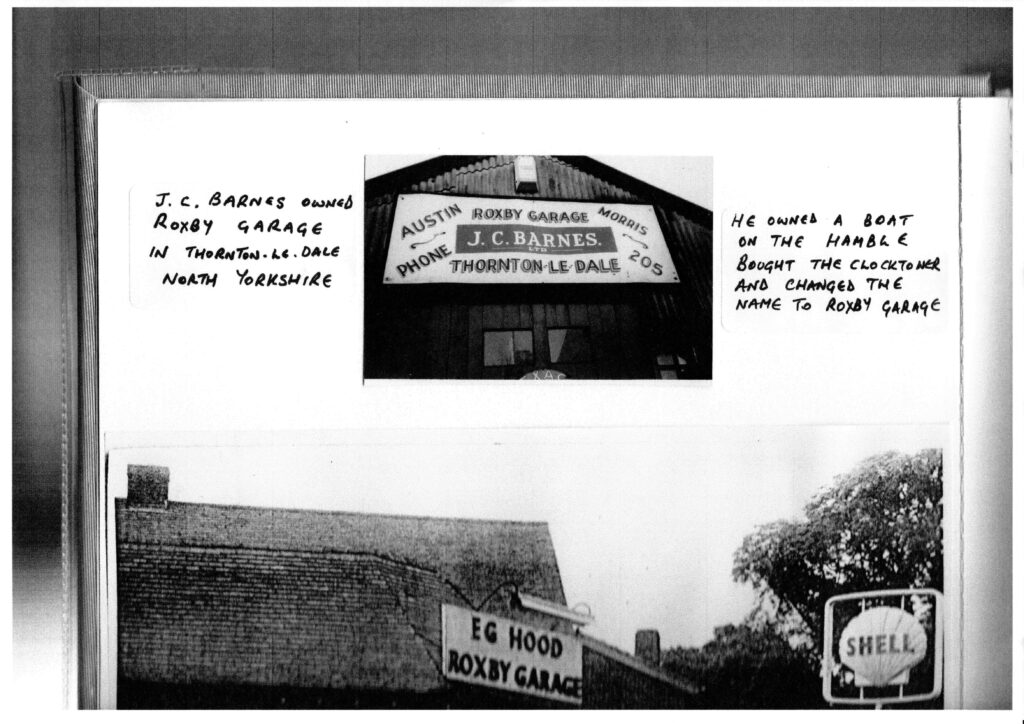 J. C. BARNES OWNED
ROXBY GARAGE
IN THORNTON-LE-DALE
NORTH YORKSHIRE
AUSTIN ROXBY GARAGE MORRIS
J. C. BARNES.
LTD
PHONE 205
THORNTON-LE-DALE
XAC
HE OWNED A BOAT
ON THE HAMBLE
BOUGHT THE CLOCKTOWER
AND CHANGED THE
NAME TO ROXBY GARAGE
EG HOOD
ROXBY GARAGE
SHELL